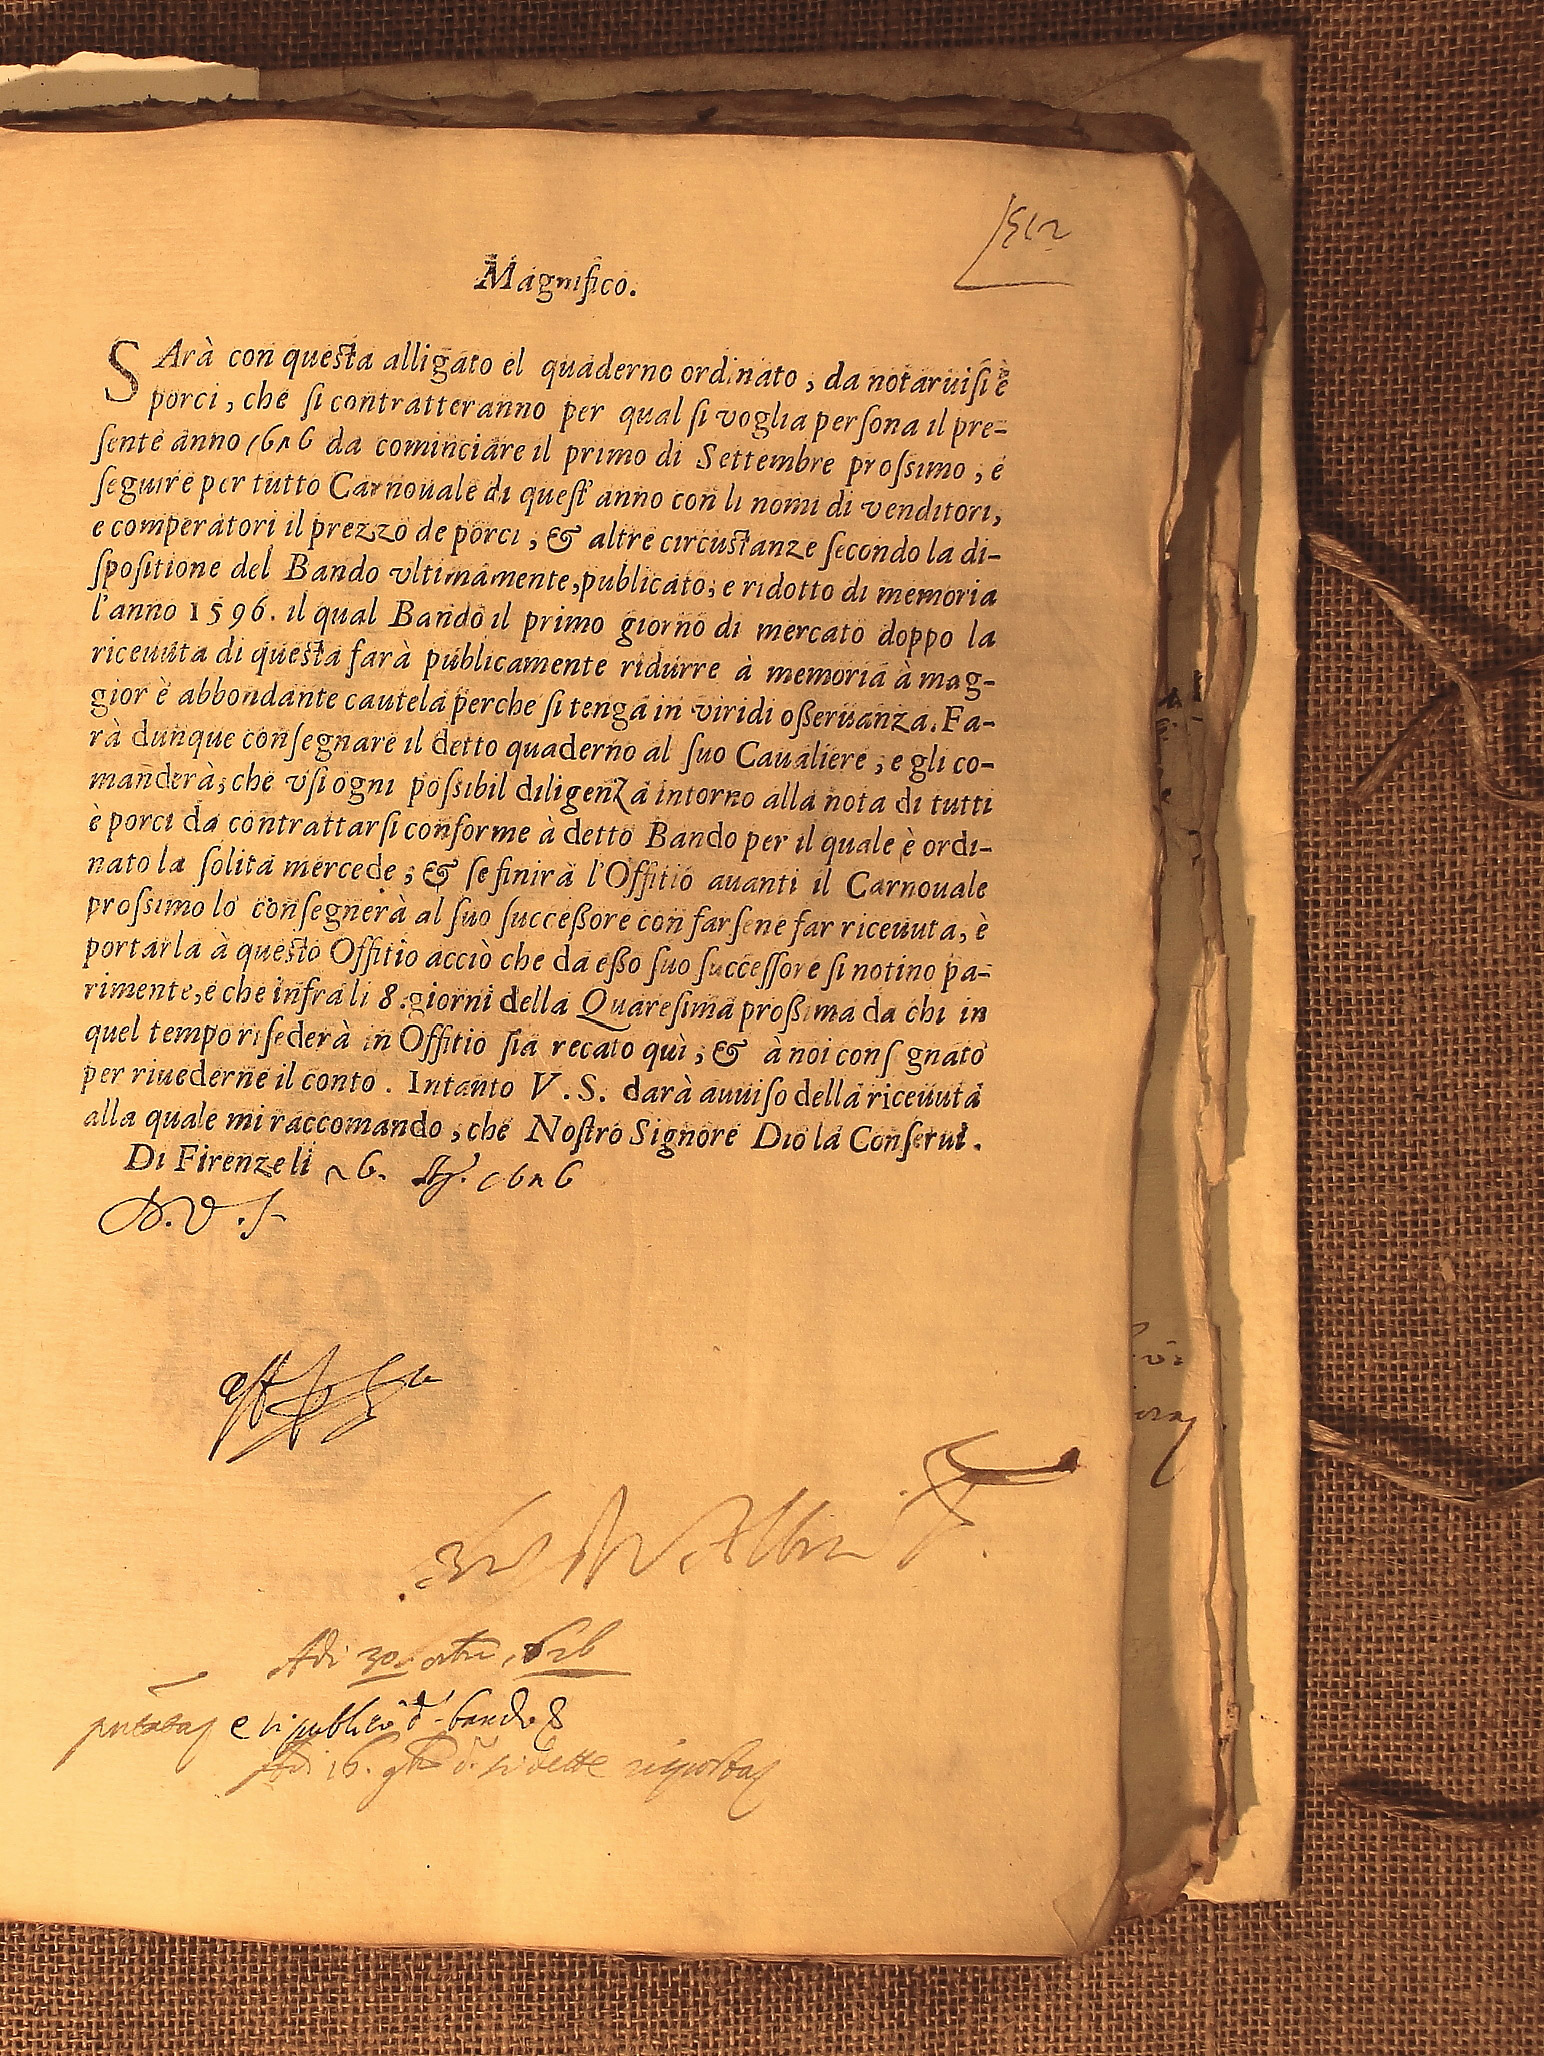 512
Magnifico.
SArà con questa alligato el quaderno ordinato, da notaruisi è
porci, che si contratteranno per qual si voglia persona il pre-
sente anno 1626 da cominciare il primo di Settembre prossimo, e
seguire per tutto Carnouale di quest'anno con li nomi di venditori,
e comperatori il prezzo de porci, & altre circustanze secondo la di-
spositione del Bando vltimamente, publicato, e ridotto di memoria
l'anno 1596. il qual Bando il primo giorno di mercato doppo la
riceuuta di questa farà publicamente ridurre à memoria à mag-
gior è abbondante cautela perche si tenga in viridi osseruanza. Fa-
rà dunque consegnare il detto quaderno al suo Caualiere, e gli co-
manderà, che vsi ogni possibil diligenza intorno alla nota di tutti
è porci da contrattarsi conforme à detto Bando per il quale è ordi-
nato la solita mercede, & se finirà l'Offitio auanti il Carnouale
prossimo lo consegnerà al suo successore con farsene far riceuuta, è
portarla à questo Offitio acciò che da esso suo successore si notino pa-
rimente, e che infra li 8. giorni della Quaresima prossima da chi in
quel tempo risederà in Offitio sia recato quì, & à noi cons gnato
per riuederne il conto. Intanto V.S. darà auuiso della riceuuta
alla quale mi raccomando, che Nostro Signore Dio la Conserui.
Di Firenze li 26. 1626
D.V.S.
Adi 30 1626
e si publicò bando
Adi 16. si dette